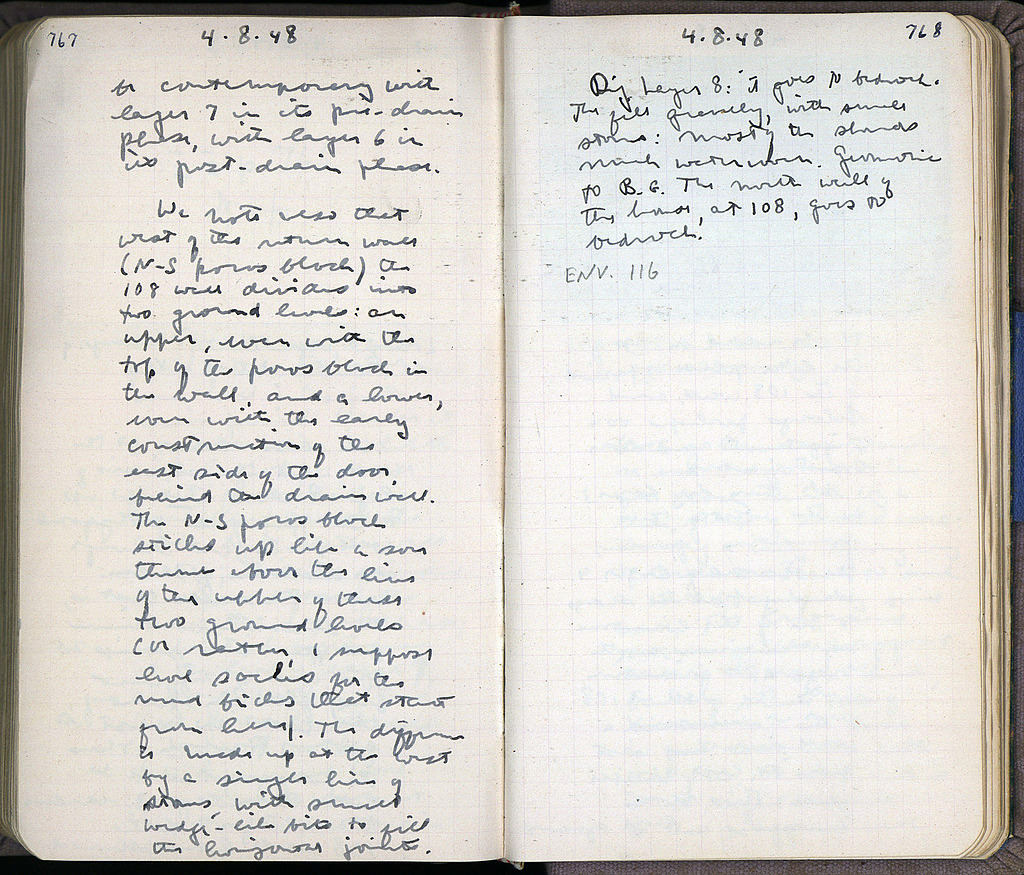 767
4.8.48
be contemporary with
layer 7 in its pre-drain
phase, with layer 6 in
its post-drain phase.
We note also that
west of the return wall
(N-S poros block) the
108 wall divides into
two ground levels: an
upper, even with the
top of the poros block in
the wall, and a lower,
even with the early
construction of the
east side of the door,
behind the drain well.
The N-S poros block
sticks up like a sore
thumb above the line
of the upper of these
two ground levels
(or rather, I suppose
level socles for the
mud bricks that start
from here). The difference
is made up at the west
by a single line of
stones, with small
wedge-like bits to fill
the horizontal joints.
768
4.8.48
Dig Layer 8: it goes to bedrock.
The fill gravelly, with small
stones: mostly the sherds
much waterworn. Geometric
to B.G. The north wall of
the house, at 108, goes to
bedrock.
ENV. 116